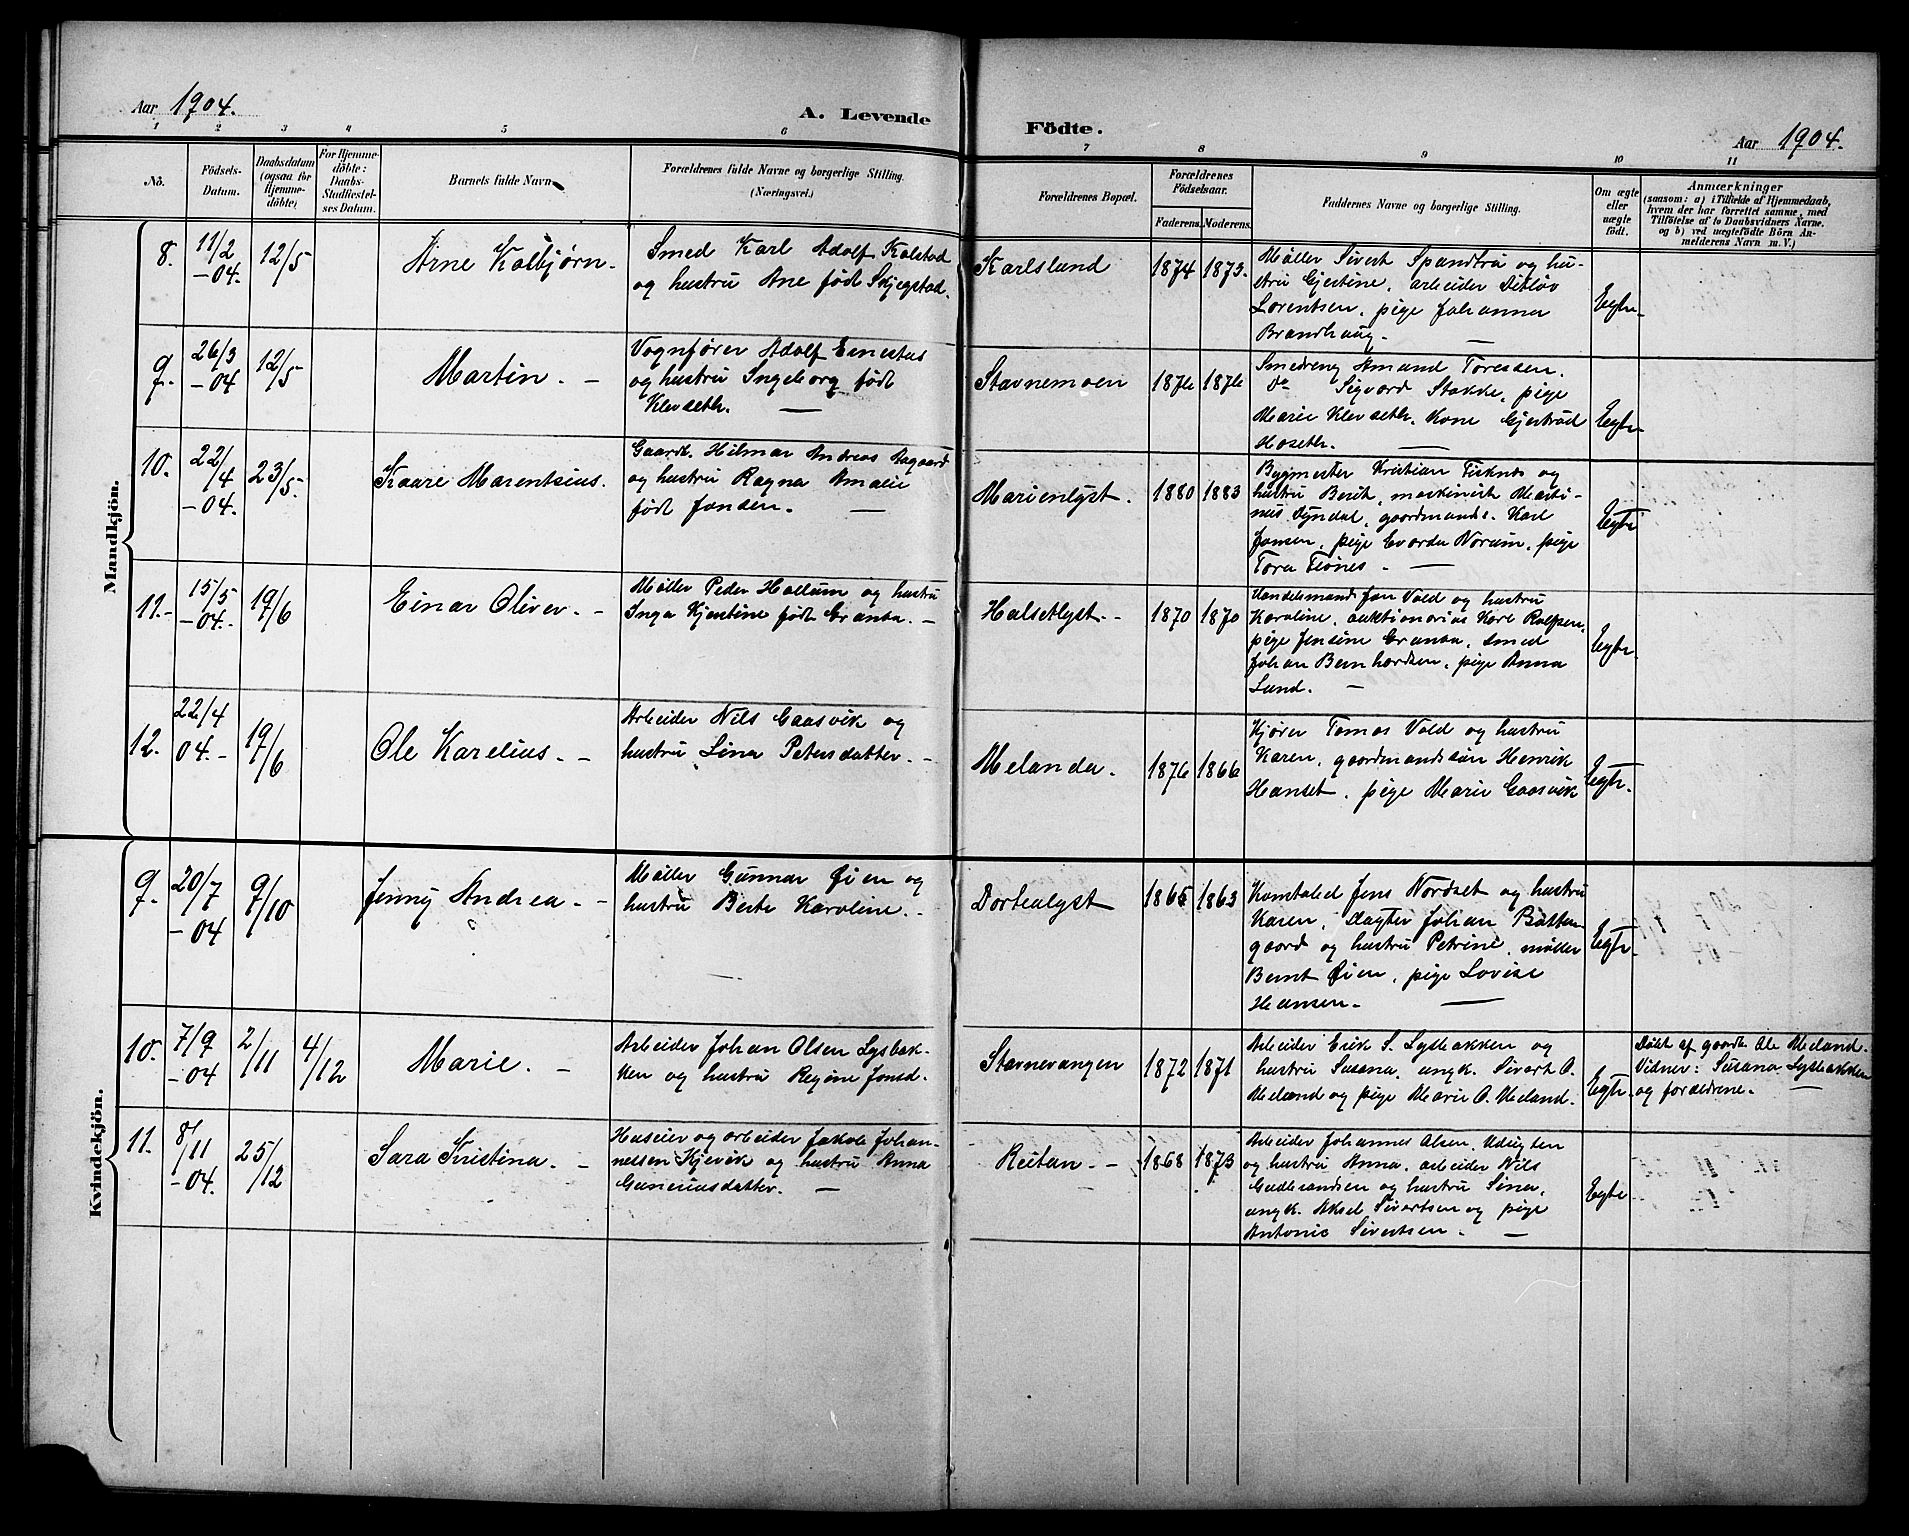 Aar 1904.
A. Levende
Födte.
Aar 1904.
1 2 3 4 5 6 7 8 9 10 11
No.
Födsels-
Datum.
Daabsdatum
(ogsaa for
Hjemme-
döbte)
For Hjemme-
döbte:
Daabs-
Stadfæstel-
ses Datum.
Barnets fulde Navn
Forældrenes fulde Navne og borgerlige Stilling.
(Næringsvei.)
Forældrenes Bopæl.
Forældrenes
Födselsaar.
Faderens. Moderens.
Faddernes Navne og borgerlige Stilling.
Om ægte
eller
uægte
födt.
Anmærkninger
(saasom: a) i Tilfælde af Hjemmedaab,
hvem der har forrettet samme, med
Tilföielse af to Daabsvidners Navne.
og b) ved uægtefödte Börn An-
melderens Navn m. V.)
Mandkjön.
8.
11/2
-04.
12/5
Arne Kolbjørn.
Smed Karl Adolf Kolstad
og hustru Ane født Skjegstad.
Karlslund
1874
1873.
Møller Sivert Spandtru og hu-
stru Gjertine, arbeider Ditløv
Lorentsen, pige Johanna
Brandhaug. —
Egte
9.
26/3
-04
12/5
Martin. —
Vognfører Adolf Ernestus
og hustru Ingeborg født
Klevseth. —
Stavnemoen
1876
1876
Smedreng Amund Toressen.
Do Sigvard Stokke, pige
Marie Klevseth. Kone Gjertrud
Moseth. —
Egte
10.
22/4
-04.
23/5.
Kaare Marentsius.
Gaardk. Hilmar Andreas Aagaard
og hustru Ragna Amalie
født Jonden. —
Marienlyst.
1880
1883
Bygmester Kristian Fisknes og
hustru Berit, maskinist Marti-
nus Dyndal, gaardmands. Karl
Jansen, pige Evarda Norum, pige
Tora Fiønes. —
Egte
11.
15/5
-04.
19/6
Einar Oliver. —
Møller Peder Hallum og hustru
Inga Kjerstine født Granaa. —
Halsetlyst. —
1870
1870
Handelsmand Jon Vold og hustru
Karoline, auktionarius Karl Rolfsen,
pige Jensine Granaa, smed
Johan Bernhardsen, pige Anna
Lund. —
Egte.
12.
22/4
04.-
19/6
Ole Karelius. —
Arbeider Nils Gaasvik og
hustru Lina Petersdatter. —
Melanda.
1876
1866
Kjører Tomas Vold og hustru
Karen, gaardmandssøn Henrik
Hanset, pige Marie Gaasvik
Egte.
Kvindekjön.
9.
20/7
-04
9/10
Jenny Andrea. —
Møller Gunnar Øien og
hustru Berte Karoline. —
Dortealyst
1865
1863
Konstabel Jens Nordset og hustru
Karen, Vagter Johan Bakken-
gaard og hustru Petrine, møller
Bernt Øien, pige Lovise
Hansen. —
Egte.
10.
7/9
-04
2/11
4/12
Marie. —
Arbeider Johan Olsen Lysbak-
ken og hustru Regine Jonsd.
Stavnevangen
1872
1871
Arbeider Erik S. Lysbakken og
hustru Susana, ungk. Sivert O.
Meland og pige Marie O. Meland.
Egte.
Døbt af gaardb. Ole Meland.
Vidner: Susana Lysbakken
og forældrene. —
11.
8/11
-04.
25/12
Sara Kristina. —
Huseier og arbeider Jakob Johan-
nessen Kjevik og hustru Anna
Guneriusdatter. —
Reitan. —
1868
1873
Arbeider Johannes Olsen, Udsigten
og hustru Anna, arbeider Nils
Gudbrandsen og hustru Sina,
ungk. Aksel Sivertsen og pige
Antonie Sivertsen. —
Egte